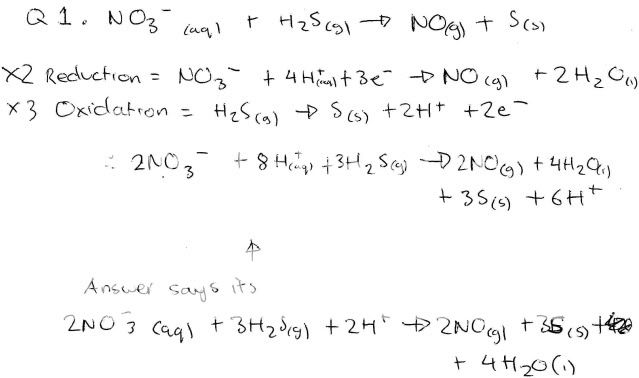 Q1. NO₃⁻ (aq) + H₂S(g) → NO(g) + S(s)
×2 Reduction = NO₃⁻ + 4H⁺(aq) + 3e⁻ → NO(g) + 2H₂O(l)
×3 Oxidation = H₂S(g) → S(s) + 2H⁺ + 2e⁻
∴ 2NO₃⁻ + 8H⁺(aq) + 3H₂S(g) → 2NO(g) + 4H₂O(l)
+ 3S(s) + 6H⁺
↑
Answer says its
2NO₃⁻ (aq) + 3H₂S(g) + 2H⁺ → 2NO(g) + 3S(s)
+ 4H₂O(l)